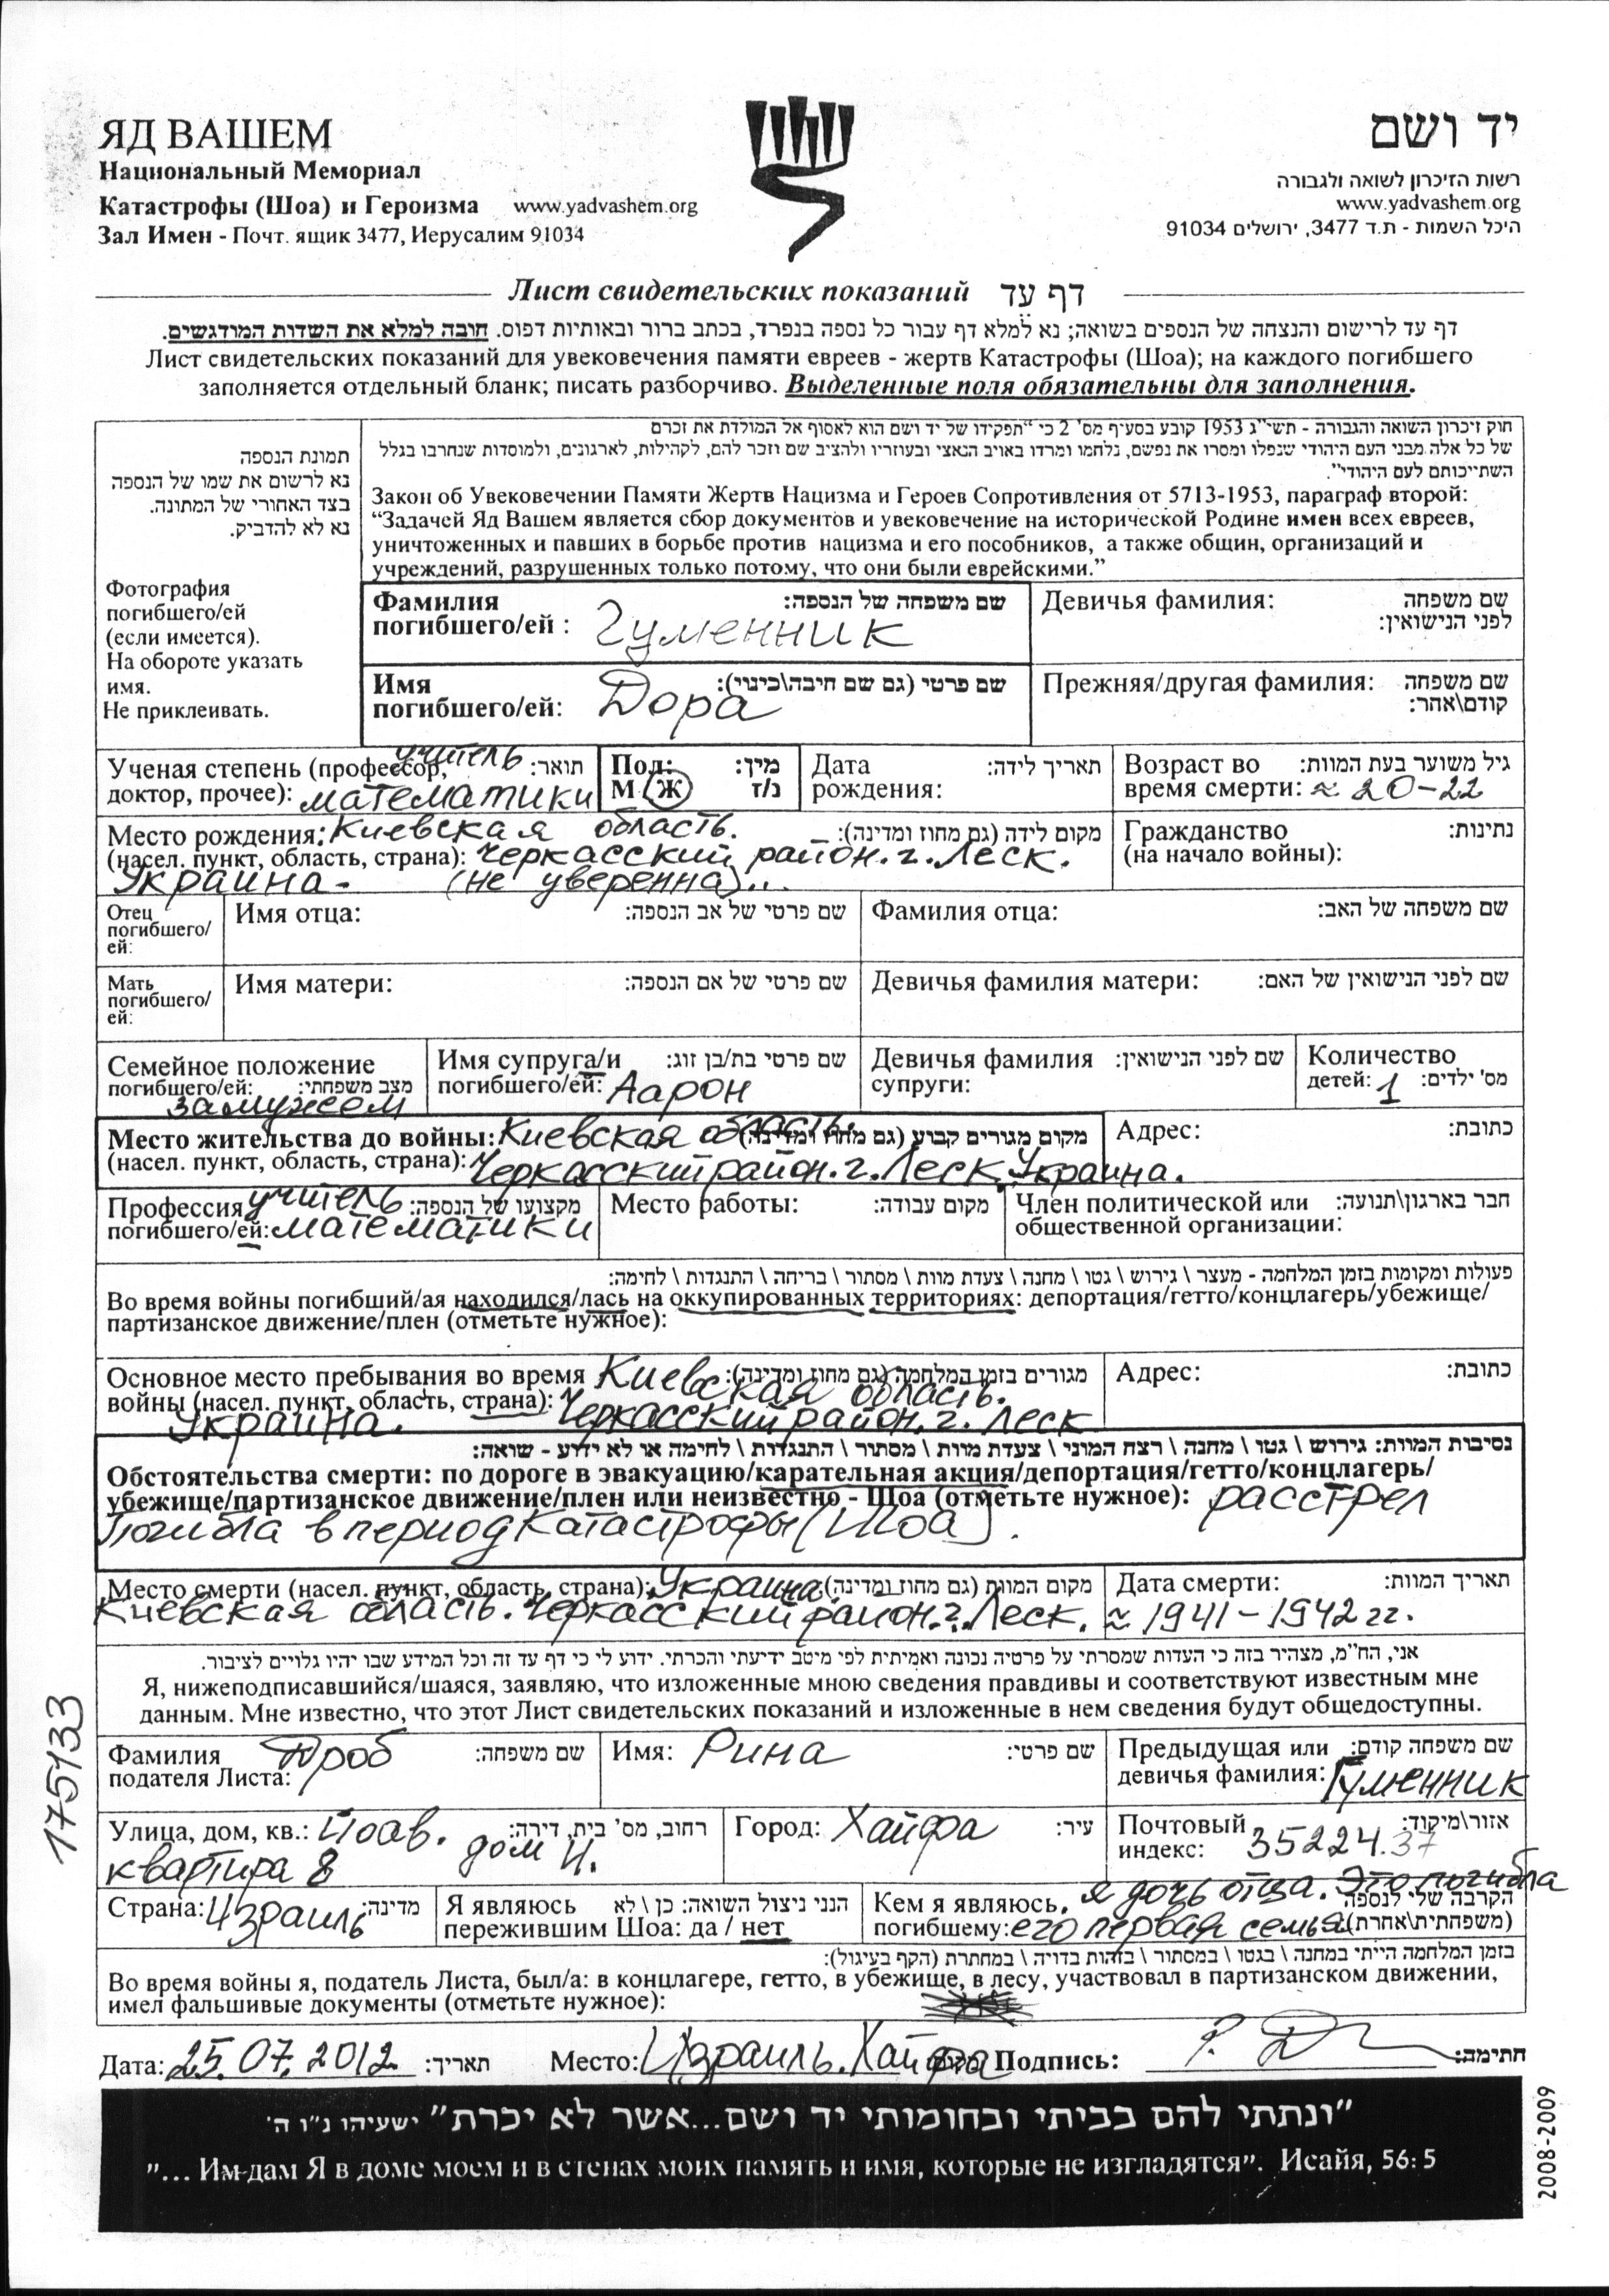 ЯД ВАШЕМ
Национальный Мемориал
Катастрофы (Шоа) и Героизма www.yadvashem.org
Зал Имен - Почт. ящик 3477, Иерусалим 91034
יד ושם
רשות הזיכרון לשואה ולגבורה
www.yadvashem.org
היכל השמות - ת.ד 3477, ירושלים 91034
Лист свидетельских показаний דף עד
דף עד לרישום והנצחה של הנספים בשואה; נא למלא דף עבור כל נספה בנפרד, בכתב ברור ובאותיות דפוס. חובה למלא את השדות המודגשים.
Лист свидетельских показаний для увековечения памяти евреев - жертв Катастрофы (Шоа); на каждого погибшего
заполняется отдельный бланк; писать разборчиво. Выделенные поля обязательны для заполнения.
תמונת הנספה
נא לרשום את שמו של הנספה
בצד האחורי של המתונה.
נא לא להדביק.
Фотография
погибшего/ей
(если имеется).
На обороте указать
имя.
Не приклеивать.
חוק זיכרון השואה והגבורה - תשי"ג 1953 קובע בסעיף מס' 2 כי "תפקידו של יד ושם הוא לאסוף אל המולדת את זכרם
של כל אלה מבני העם היהודי שנפלו ומסרו את נפשם, נלחמו ומרדו באויב הנאצי ובעוזריו ולהציב שם וזכר להם, לקהילות, לארגונים, ולמוסדות שנחרבו בגלל
השתייכותם לעם היהודי".
Закон об Увековечении Памяти Жертв Нацизма и Героев Сопротивления от 5713-1953, параграф второй:
“Задачей Яд Вашем является сбор документов и увековечение на исторической Родине имен всех евреев,
уничтоженных и павших в борьбе против нацизма и его пособников, а также общин, организаций и
учреждений, разрушенных только потому, что они были еврейскими.”
Фамилия שם משפחה של הנספה:
погибшего/ей : Гуменник
Девичья фамилия: שם משפחה
לפני הנישואין:
Имя שם פרטי (גם שם חיבה\כינוי):
погибшего/ей: Дора
Прежняя/другая фамилия: שם משפחה
קודם\אחר:
Ученая степень (профессор, учитель תואר:
доктор, прочее): математики
Пол: מין:
М Ж נ/ז
Дата תאריך לידה:
рождения:
Возраст во גיל משוער בעת המוות:
время смерти: ≈ 20-22
Место рождения: Киевская область. מקום לידה (גם מחוז ומדינה):
(насел. пункт, область, страна): Черкасский район. г. Леск.
Украина - (не уверенна)...
Гражданство נתינות:
(на начало войны):
Отец
погибшего/
ей:
Имя отца: שם פרטי של אב הנספה:
Фамилия отца: שם משפחה של האב:
Мать
погибшего/
ей:
Имя матери: שם פרטי של אם הנספה:
Девичья фамилия матери: שם לפני הנישואין של האם:
Семейное положение
погибшего/ей: מצב משפחתי:
замужем
Имя супруга/и שם פרטי בת/בן זוג:
погибшего/ей: Аарон
Девичья фамилия שם לפני הנישואין:
супруги:
Количество
детей: 1 מס' ילדים:
Место жительства до войны: Киевская область. מקום מגורים קבוע (גם מחוז ומדינה)
(насел. пункт, область, страна): Черкасский район. г. Леск. Украина.
Адрес: כתובת:
Профессия учитель מקצועו של הנספה:
погибшего/ей: математики
Место работы: מקום עבודה:
Член политической или חבר בארגון\תנועה:
общественной организации:
פעולות ומקומות בזמן המלחמה - מעצר \ גירוש \ גטו \ מחנה \ צעדת מוות \ מסתור \ בריחה \ התנגדות \ לחימה:
Во время войны погибший/ая находился/лась на оккупированных территориях: депортация/гетто/концлагерь/убежище/
партизанское движение/плен (отметьте нужное):
Основное место пребывания во время Киевская область. מגורים בזמן המלחמה (גם מחוז ומדינה):
войны (насел. пункт, область, страна): Черкасский район. г. Леск
Украина.
Адрес: כתובת:
נסיבות המוות: גירוש \ גטו \ מחנה \ רצח המוני \ צעדת מוות \ מסתור \ התנגדות \ לחימה או לא ידוע - שואה:
Обстоятельства смерти: по дороге в эвакуацию/карательная акция/депортация/гетто/концлагерь/
убежище/партизанское движение/плен или неизвестно - Шоа (отметьте нужное): расстрел
Погибла в период Катастрофы (Шоа).
Место смерти (насел. пункт, область, страна): Украина. מקום המוות (גם מחוז ומדינה):
Киевская область. Черкасский район. г. Леск.
Дата смерти: תאריך המוות:
≈ 1941-1942 гг.
אני, הח"מ, מצהיר בזה כי העדות שמסרתי על פרטיה נכונה ואמיתית לפי מיטב ידיעתי והכרתי. ידוע לי כי דף עד זה וכל המידע שבו יהיו גלויים לציבור.
Я, нижеподписавшийся/шаяся, заявляю, что изложенные мною сведения правдивы и соответствуют известным мне
данным. Мне известно, что этот Лист свидетельских показаний и изложенные в нем сведения будут общедоступны.
175133
Фамилия Дроб שם משפחה:
подателя Листа:
Имя: Рина שם פרטי:
Предыдущая или שם משפחה קודם:
девичья фамилия: Гуменник
Улица, дом, кв.: Йоав. רחוב, מס' בית, דירה:
дом 4.
квартира 8
Город: Хайфа עיר:
Почтовый אזור\מיקוד:
индекс: 35224.37
Страна: Израиль מדינה:
Я являюсь הנני ניצול השואה: כן \ לא
пережившим Шоа: да / нет
Кем я являюсь, я дочь отца. Это погибла הקרבה שלי לנספה
погибшему: его первая семья (משפחתית\אחרת)
בזמן המלחמה הייתי במחנה \ בגטו \ במסתור \ בזהות בדויה \ במחתרת (הקף בעיגול):
Во время войны я, податель Листа, был/а: в концлагере, гетто, в убежище, в лесу, участвовал в партизанском движении,
имел фальшивые документы (отметьте нужное):
Дата: 25.07.2012 תאריך: Место: Израиль. Хайфа Подпись: חתימה:
"ונתתי להם בביתי ובחומותי יד ושם...אשר לא יכרת" ישעיהו נ"ו ה'
"... Им дам Я в доме моем и в стенах моих память и имя, которые не изгладятся". Исайя, 56:5
2008-2009